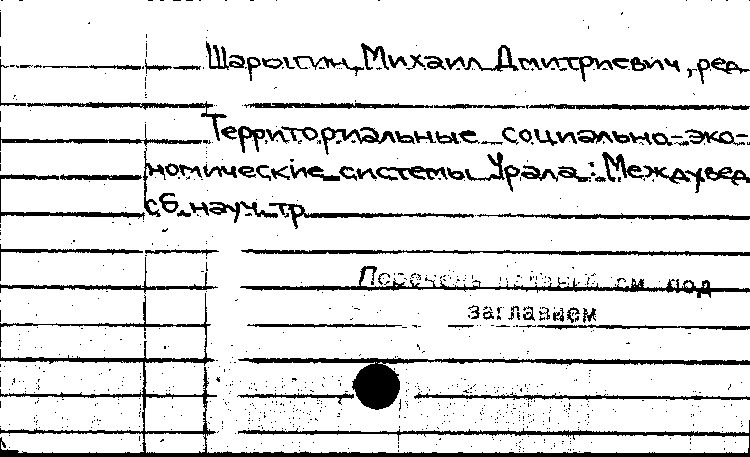 Шарыгин, Михаил Дмитриевич, ред.
Территориальные социально-эко-
номические системы Урала: Междувед.
сб. науч. тр.
Перечень изданий см. под
заглавием